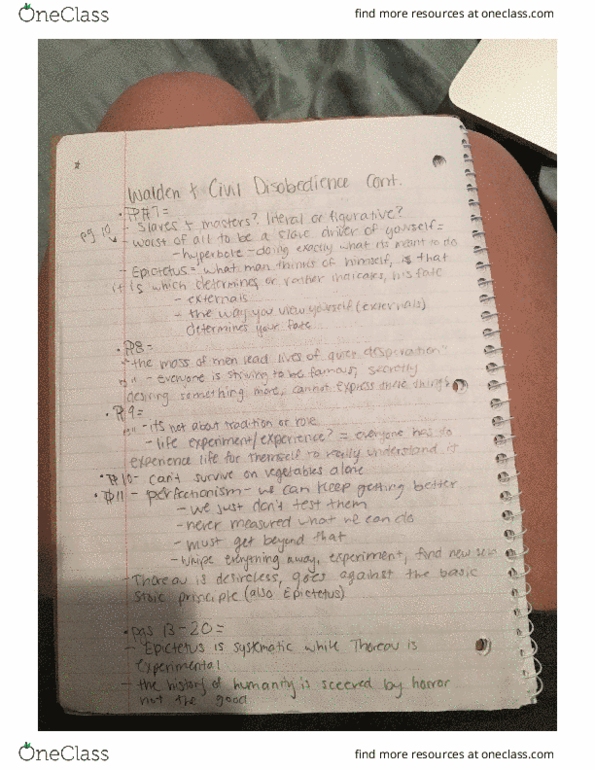 OneClass
find more resources at oneclass.com
Walden + Civil Disobedience Cont.
• P#7=
pg 10 - Slaves + masters? literal or figurative?
- worst of all to be a slave driver of yourself=
- hyperbole - doing exactly what its meant to do
- Epictetus = what man thinks of himself, is that
it is which determines or rather indicates, his fate
- externals
- the way you view yourself (externals)
determines your fate
• P8-
"the mass of men lead lives of quiet desperation"
- Everyone is striving to be famous, secretly
desiring something more, cannot express these things
• P9=
- its not about tradition or role
- life experiment/experience? = everyone has to
experience life for themself to really understand it
• P#10- can't survive on vegetables alone
• P11 - perfectionism - we can keep getting better
- we just don't test them
- never measured what we can do
- must get beyond that
- whipe everything away, experiment, find new
- Thoreau is desireless, goes against the basic
stoic principle (also Epictetus)
• pgs 13-20=
- Epictetus is systematic while Thoreau is
experimental
- the history of humanity is sceered by horror
not the good
OneClass
find more resources at oneclass.com